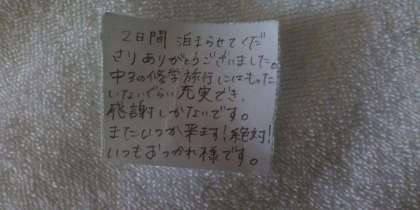 2日間 泊まらせてくだ
さりありがとうございました。
中3の修学旅行にはもった
いないぐらい充実でき、
感謝しかないです。
またいつか来ます!絶対!
いつもおつかれ様です。